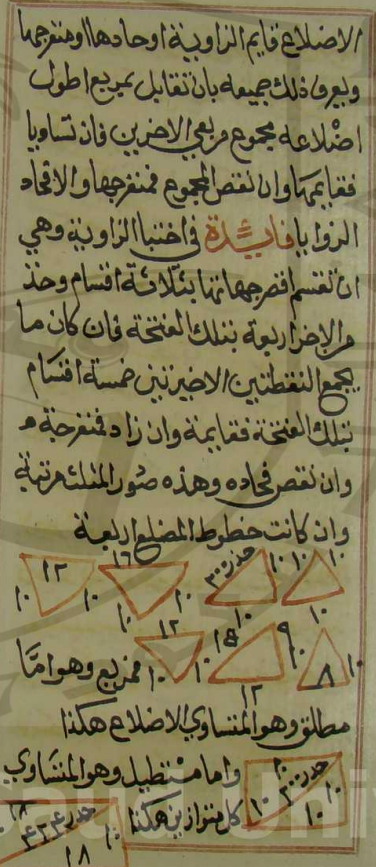 الاضلاع قايم الزاوية او حادها او منفرجها
ويعرف ذلك جميعه بان تقابل بمربع اطول
اضلاعه مجموع مربعي الاخرين فان تساويا
فقايمها وان نقص المجموع فمنفرجها والا فحاد
الزوايا فايدة في اختبا الزاوية وهي
ان تقسم اقصر جهاتها بثلاثة اقسام وخذ
من الاخر اربعة بتلك الفتحة فان كان ما
يجمع النقطتين الاخيرتين خمسة اقسام
بتلك الفتحة فقايمة وان زاد فمنفرجة
وان نقص فحاده وهذه صور المثلث مرتبة
وان كانت خطوط المضلع اربعة
١٢ ١٠ ١٠
١٦ ١٠ ١٠
١٠ ١٠
١٠ ١٠ ١٠
١٢ ١٠ ١٠
١٥ ٩ ١٢
١٠ ١٠ ٨
فمربع وهو اما
مطلق وهو المتساوي الاضلاع هكذا
واما مستطيل وهو المتساوي
كل متوازيين هكذا
١٠ ١٠ ١٠ ١٠
١٨ ١٠ ١٨